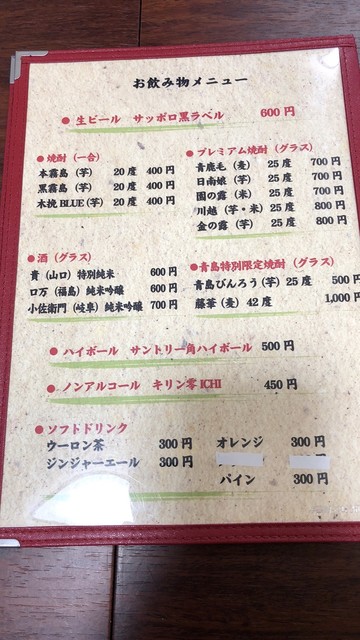 お飲み物メニュー
●生ビール サッポロ黒ラベル 600円
●焼酎（一合）
本霧島（芋） 20度 400円
黒霧島（芋） 20度 400円
木挽BLUE（芋） 20度 400円
●プレミアム焼酎（グラス）
青鹿毛（麦） 25度 700円
日南娘（芋） 25度 700円
園の露（米） 25度 700円
川越（芋・米）25度 800円
金の露（芋） 25度 800円
●酒（グラス）
貴（山口）特別純米 600円
ロ万（福島）純米吟醸 600円
小佐衛門（岐阜）純米吟醸 700円
●青島特別限定焼酎（グラス）
青島びんろう（芋）25度 500円
藤華（麦）42度 1,000円
●ハイボール サントリー角ハイボール 500円
●ノンアルコール キリン零ICHI 450円
●ソフトドリンク
ウーロン茶 300円
ジンジャーエール 300円
オレンジ 300円
パイン 300円